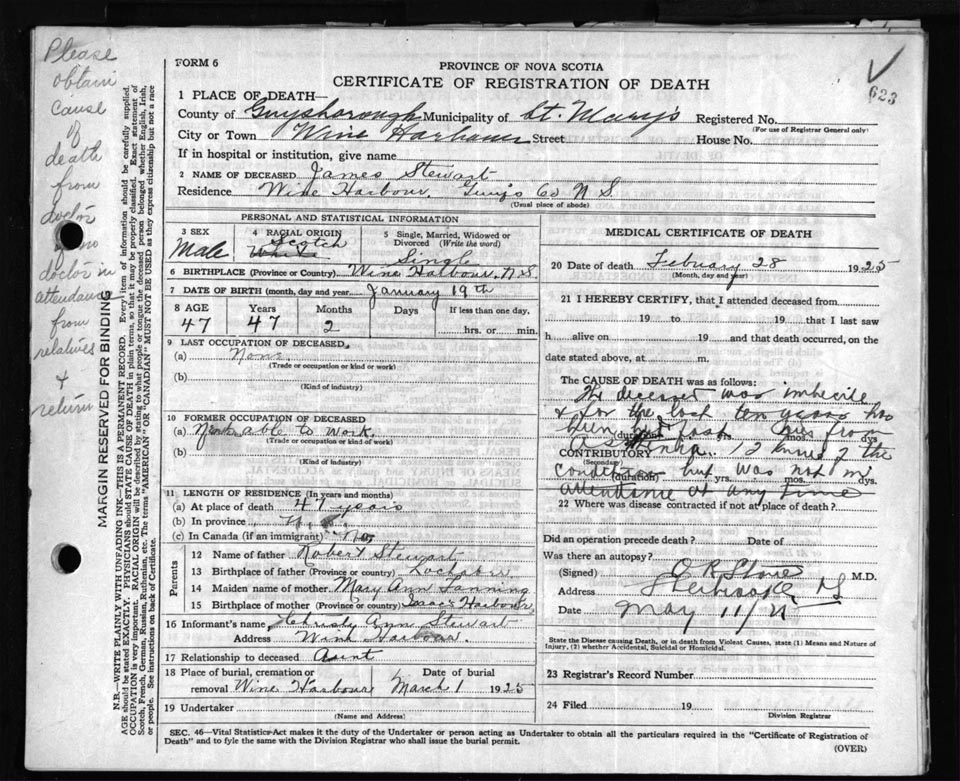 Please
obtain
cause
of
death
from
doctor
if no
doctor in
attendance
from
relatives
+
return
MARGIN RESERVED FOR BINDING
N.B.—WRITE PLAINLY WITH UNFADING INK—THIS IS A PERMANENT RECORD. Every item of information should be carefully supplied.
AGE should be stated EXACTLY. PHYSICIANS should STATE CAUSE OF DEATH in plain terms, so that it may be properly classified. Exact statement of
OCCUPATION is very important. RACIAL ORIGIN will be described by stating to what people or tongue the deceased person belonged whether English, Irish,
Scotch, French, German, Russian, Ruthenian, etc. The terms "AMERICAN" or "CANADIAN" MUST NOT BE USED as they express citizenship but not a race
or people. See instructions on back of Certificate.
FORM 6
PROVINCE OF NOVA SCOTIA
CERTIFICATE OF REGISTRATION OF DEATH
623
1 PLACE OF DEATH—
County of Guysborough Municipality of St. Mary's Registered No.
(For use of Registrar General only)
City or Town Wine Harbour Street House No.
If in hospital or institution, give name
2 NAME OF DECEASED James Stewart
Residence Wine Harbour, Guy's Co N S.
(Usual place of abode)
PERSONAL AND STATISTICAL INFORMATION
3 SEX
Male
4 RACIAL ORIGIN
Scotch
White
5 Single, Married, Widowed or
Divorced (Write the word)
Single
6 BIRTHPLACE (Province or Country) Wine Harbour, N.S.
7 DATE OF BIRTH (month, day and year) January 19th
8 AGE Years Months Days If less than one day,
47 47 2 hrs. or min.
9 LAST OCCUPATION OF DECEASED
(a) None.
(Trade or occupation or kind or work)
(b)
(Kind of industry)
10 FORMER OCCUPATION OF DECEASED
(a) Not able to work.
(Trade or occupation or kind of work)
(b)
(Kind of industry)
11 LENGTH OF RESIDENCE (In years and months)
(a) At place of death 47 years
(b) In province N. S.
(c) In Canada (if an immigrant) No
Parents
12 Name of father Robert Stewart
13 Birthplace of father (Province or country) Lochaber
14 Maiden name of mother Mary Ann Fanning
15 Birthplace of mother (Province or country) Isaac's Harbour,
16 Informant's name Christy Ann Stewart
Address Wine Harbour.
17 Relationship to deceased Aunt
18 Place of burial, cremation or removal Wine Harbour
Date of burial March 1 1925
19 Undertaker
(Name and Address)
MEDICAL CERTIFICATE OF DEATH
20 Date of death Febuary 28 1925
(Month, day and year)
21 I HEREBY CERTIFY, that I attended deceased from
19 to 19 that I last saw
h alive on 19 and that death occurred, on the
date stated above, at m.
The CAUSE OF DEATH was as follows:
The deceased was imbecile
& for the last ten years has
been bed fast from
(duration) yrs. mos. dys.
CONTRIBUTORY
(Secondary)
I knew of the
condition but was not in
(duration) yrs. mos. dys.
attendance at any time
22 Where was disease contracted if not at place of death?
Did an operation precede death? Date of
Was there an autopsy?
(Signed) M.D.
Address Sherbrooke NS
Date May 11/25
State the Disease causing Death, or in death from Violent Causes, state (1) Means and Nature of
Injury, (2) whether Accidental, Suicidal or Homicidal.
23 Registrar's Record Number
24 Filed 19
Division Registrar
SEC. 46—Vital Statistics Act makes it the duty of the Undertaker or person acting as Undertaker to obtain all the particulars required in the "Certificate of Registration of
Death" and to fyle the same with the Division Registrar who shall issue the burial permit.
(OVER)